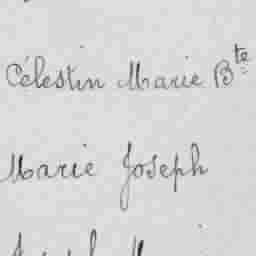 Célestin Marie Bte
Marie Joseph